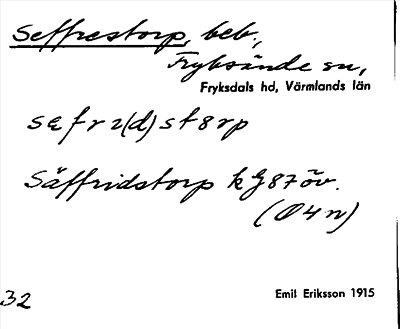 Seffrestorp, beb.,
Fryksände sn,
Fryksdals hd, Värmlands län
sɛfrɿ(d)st8rp
Säffridstorp kg87öv.
(Ö4n)
32
Emil Eriksson 1915